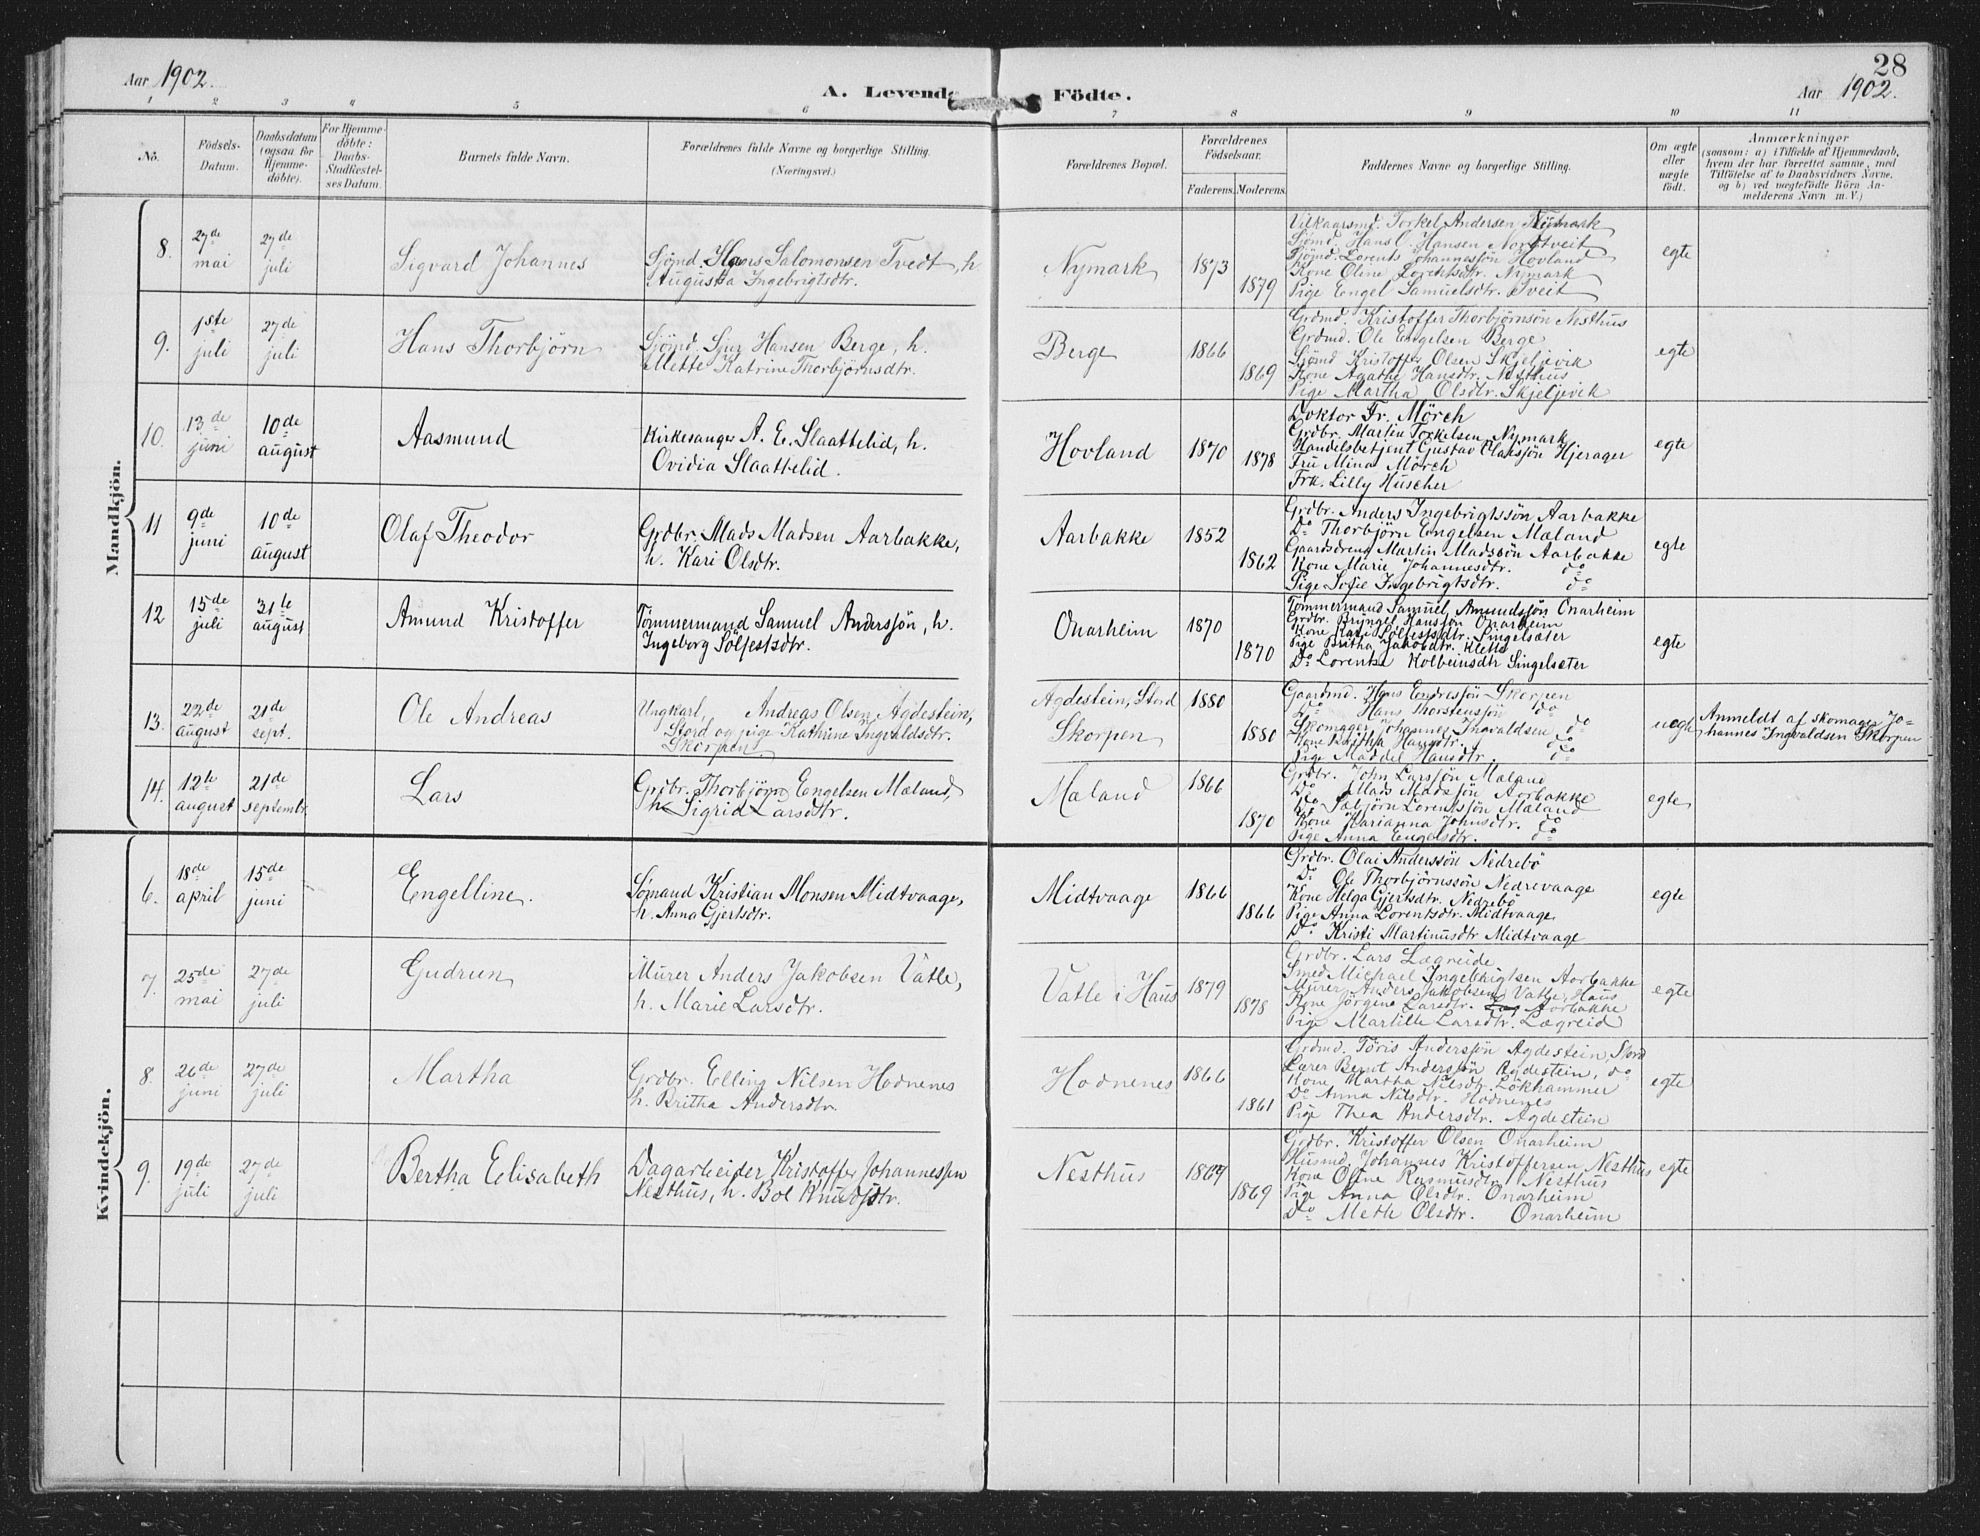 28
Aar 1902.
A. Levende Födte.
Aar 1902.
1 2 3 4 5 6 7 8 9 10 11
No.
Födsels-
Datum.
Daabsdatum
(ogsaa for
Hjemme-
döbte).
For Hjemme-
döbte:
Daabs-
Stadfæstel-
ses Datum.
Barnets fulde Navn.
Forældrenes fulde Navne og borgerlige Stilling.
(Næringsvei.)
Forældrenes Bopæl.
Forældrenes
Födselsaar.
Faderens. Moderens.
Faddernes Navne og borgerlige Stilling.
Om ægte
eller
uægte
født.
Anmærkninger
(saasom: a) i Tilfælde af Hjemmedaab,
hvem der har forrettet samme, med
Tilföielse af to Daabsvidners Navne,
og b) ved uægtefödte Börn An-
melderens Navn m.V.)
Mandkjön.
8.
27de
mai
27de
juli
Sigvard Johannes
Sjömd. Hans Salomonsen Tvedt, h
Augusta Ingebrigtsdtr.
Nymark
1873
1879
Vilkaarsmd. Torkel Andersen Nymark
Sjömd. Hans O. Hansen Nordtveit
Sjömd. Lorents Johannessön Hovland
Kone Oline Lorentsdtr. Nymark
Pige Engel Samuelsdtr. Tveit
egte
9.
1ste
juli
27de
juli
Hans Thorbjörn
Sjömd. Sjur Hansen Berge, h.
Mette Katrine Thorbjörnsdtr.
Berge
1866
1869
Grdmd. Kristoffer Thorbjörnsön Nesthus
Grdmd. Ole Engelsen Berge
Sjömd Kristoffer Olsen Skjeljevik
Kone Agathe Hansdtr. Nesthus
Pige Martha Olsdtr. Skjeljevik
egte
10.
13de
juni
10de
august
Aasmund
Kirkesanger A. E. Slaattelid, h.
Ovidia Slaattelid.
Hovland
1870
1878
Doktor Fr. Mörch
Grdbr. Martin Torkelsen Nymark
Handelsbetjent Gustav Olafsjön Hjerager
Fru Mina Mörch
Frk. Lilly Huscher
egte
11
9de
juni
10de
august
Olaf Theodor
Grdbr. Mads Madsen Aarbakke,
h. Kari Olsdtr.
Aarbakke
1852
1862
Grdbr. Anders Ingebrigtssön Aarbakke
Do Thorbjörn Engelsen Mæland
Gaardsdreng Martin Madssön Aarbakke
Kone Marie Johannesdtr. do
Pige Sofie Ingebrigtsdtr. do
egte
12
15de
juli
31te
august
Amund Kristoffer
Tömmermand Samuel Andersjön, h.
Ingeborg Sölfestsdtr.
Onarheim
1870
1870
Tömmermand Samuel Amundsjön Onarheim
Grdbr. Bryngel Hansjön Onarheim
Kone Kari Sölfestsdtr. Singelsæter
Pige Britha Jakobdtr. Kletta
Do Lorentse Kolbeinsdtr Singelsæter
egte
13.
22de
august
21de
sept.
Ole Andreas
Ungkarl, Andreas Olsen Agdestein,
Stord og pige Kathrine Ingvaldsdtr.
Skorpen
Agdestein, Stord
Skorpen
1880
1880
Gaardmd. Hans Endresjön Skorpen
do Hans Thorstensjön do
Skomager Johannes Ingvaldsen do
Kone Britha Hansdtr. do
Pige Maddel Hansdtr. do
uegte
Anmeldt af skomager Jo-
hannes Ingvaldsen Skorpen
14.
12te
august
21de
septembr.
Lars
Grdbr. Thorbjörn Engelsen Mæland,
h. Sigrid Larsdtr.
Mæland
1866
1870
Grdbr. John Larsjön Mæland
Do Mads Madsjön Aarbakke
Do Sæbjörn Lorentsjön Mæland
Kone Marianna Johnsdtr. do
Pige Anna Engelsdtr. do
egte
Kvindekjön.
6.
18de
april
15de
juni
Engelline.
Sömand Kristian Monsen Midtvaage,
h. Anna Gjertsdtr.
Midtvaage
1866
1866
Grdbr. Olai Anderssön Nedrebö
Do Ole Thorbjörnssön Nedrevaage
Kone Helga Gjertsdtr. Nedrebö
Pige Anna Lorentsdtr. Midtvaage
Do Kristi Martinusdtr Midtvaage
egte
7.
25de
mai
27de
juli
Gudrun
Murer Anders Jakobsen Vatle,
h. Marie Larsdtr.
Vatle i Haus
1879
1878
Grdbr. Lars Lægreide
Smed Michael Ingebrigtsen Aarbakke
Murer Anders Jakobsen Vatle, Haus
Kone Jörgine Larsdtr. Aarbakke
Pige Martille Larsdtr. Lægreid
egte
8.
26de
juni
27de
juli
Martha
Grdbr. Elling Nilsen Hodnenes
h. Britha Andersdtr.
Hodnenes
1866
1861
Grdmd. Töris Andersjön Agdestein, Stord
Lærer Bernt Andersjön Agdestein, do
Kone Martha Nilsdtr. Lökhammer
Do Anna Nilsdtr. Hodnenes
Pige Thea Andersdtr. Agdestein
egte
9.
19de
juli
27de
juli
Bertha Elisabeth
Dagarbeider Kristoffer Johannesjøn
Nesthus, h. Boe Knudsdtr.
Nesthus
1869
1869
Grdbr. Kristoffer Olsen Onarheim
Husmd Johannes Kristoffersen Nesthus
Kone Oline Rasmusdtr Nesthus
Pige Anna Olsdtr. Onarheim
Do Meth Olsdtr. Onarheim
egte